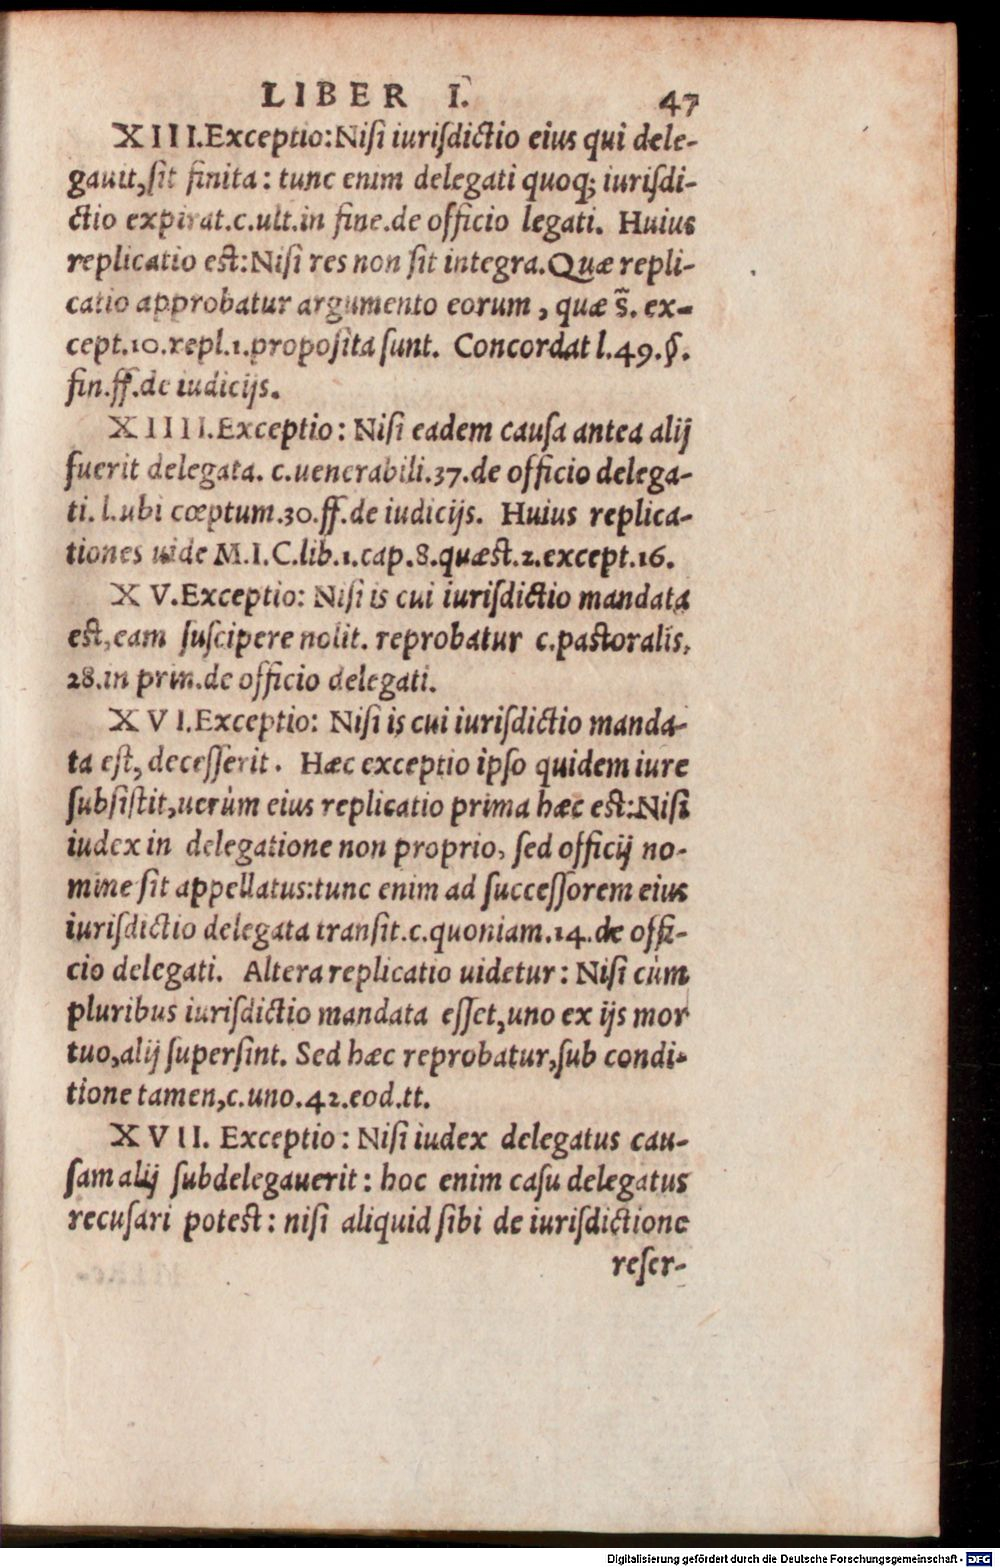 LIBER I. 47
XIII.Exceptio:Nisi iurisdictio eius qui dele-
gauit,sit finita: tunc enim delegati quoq; iurisdi-
ctio expirat.c.ult.in fine.de officio legati. Huius
replicatio est:Nisi res non sit integra.Quæ repli-
catio approbatur argumento eorum, quæ s̃. ex-
cept.10.repl.1.proposita sunt. Concordat l.49.§.
fin.ff.de iudicijs.
XIIII.Exceptio: Nisi eadem causa antea alij
fuerit delegata. c.uenerabili.37.de officio delega-
ti. l.ubi cœptum.30.ff.de iudicijs. Huius replica-
tiones uide M.I.C.lib.1.cap.8.quæst.2.except.16.
XV.Exceptio: Nisi is cui iurisdictio mandata
est,eam suscipere nolit. reprobatur c.pastoralis,
28.in prin.de officio delegati.
XVI.Exceptio: Nisi is cui iurisdictio manda-
ta est, decesserit. Hæc exceptio ipso quidem iure
subsistit,uerùm eius replicatio prima hæc est:Nisi
iudex in delegatione non proprio, sed officij no-
mine sit appellatus:tunc enim ad successorem eius
iurisdictio delegata transit.c.quoniam.14.de offi-
cio delegati. Altera replicatio uidetur: Nisi cùm
pluribus iurisdictio mandata esset,uno ex ijs mor
tuo,alij supersint. Sed hæc reprobatur,sub condi-
tione tamen,c.uno.42.eod.tt.
XVII. Exceptio: Nisi iudex delegatus cau-
sam alij subdelegauerit: hoc enim casu delegatus
recusari potest: nisi aliquid sibi de iurisdictione
reser-
Digitalisierung gefördert durch die Deutsche Forschungsgemeinschaft - DFG